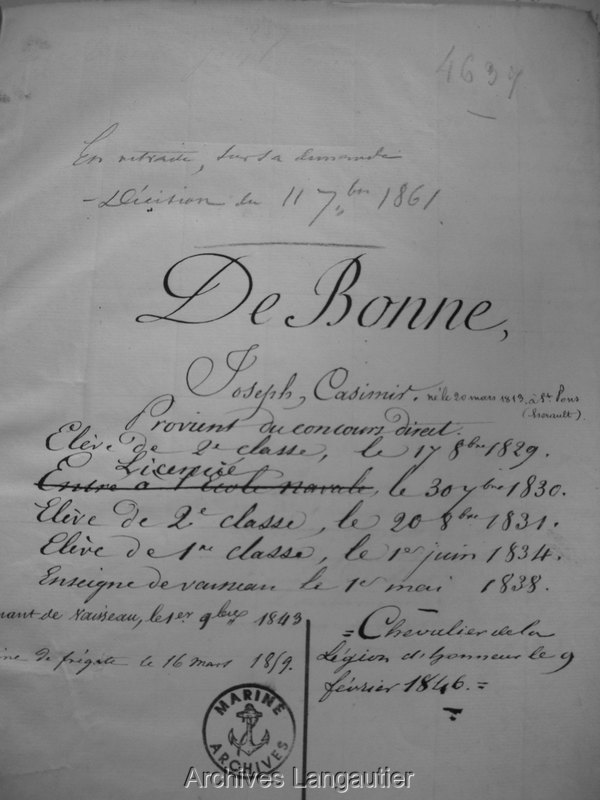 4637
En retraite, sur sa demande
- Décision du 11 7bre 1861
De Bonne,
Joseph, Casimir. né le 20 mars 1813, à St Pons
(hérault).
Provient du concours direct.
Elève de 2e classe, le 17 8bre 1829.
Licencié
Entré à l'Ecole navale, le 30 7bre 1830.
Elève de 2e classe, le 20 8bre 1831.
Elève de 1re classe, le 1er juin 1834.
Enseigne de vaisseau le 1er mai 1838.
nant de Vaisseau, le 1er 9bre 1843
ine de frégate le 16 mars 1859.
= Chevalier de la
Légion d'honneur le 9
février 1846. =
MARINE
ARCHIVES
Archives Langautier